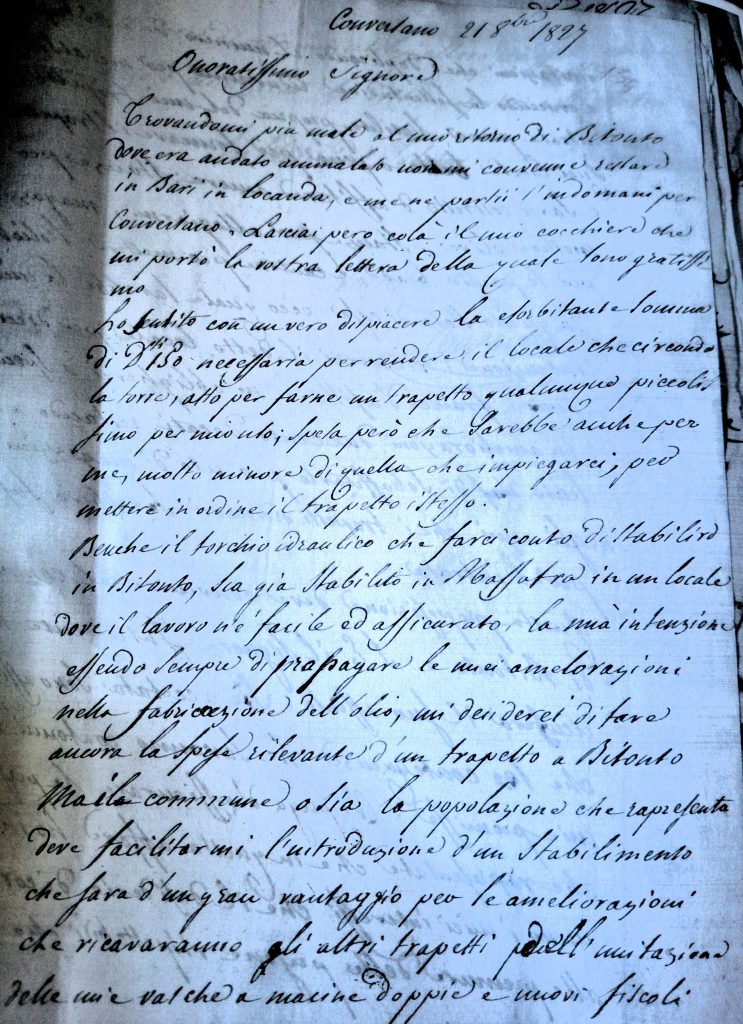 Conversano 21 8bre 1827
Onoratissimo Signore
Trovandomi piu male al mio ritorno di Bitonto
dove era andato ammalato non mi convenne restare
in Bari in locanda, e me ne partii l'indomani per
Conversano. Lasciai pero colà il mio cocchiere che
mi portò la vostra lettera della quale sono gratissi
mo
Ho sentito con un vero dispiacere la esorbitante somma
di D.ti 150 necessaria per rendere il locale che circonda
la torre, atto per farne un trapetto qualunque piccolis
simo per mio uso; spesa però che sarebbe anche per
me, molto minore di quella che impiegarei, per
mettere in ordine il trapetto istesso.
Benche il torchio idraulico che farei conto di stabilire
in Bitonto, sia già stabilito in Massafra in un locale
dove il lavoro n'é facile ed assicurato, la mia intenzione
essendo sempre di propagare le miei ameliorazioni
nella fabricazione dell'olio, mi desiderei di fare
ancora la spese rilevante d'un trapetto a Bitonto
Ma la commune o sia la popolazione che rapresenta
deve facilitarmi l'introduzione d'un stabilimento
che sara d'un gran vantaggio per le ameliorazioni
che ricavaranno gli altri trapetti dell'imitazione
delle mie vasche a macine doppie e nuovi fiscoli